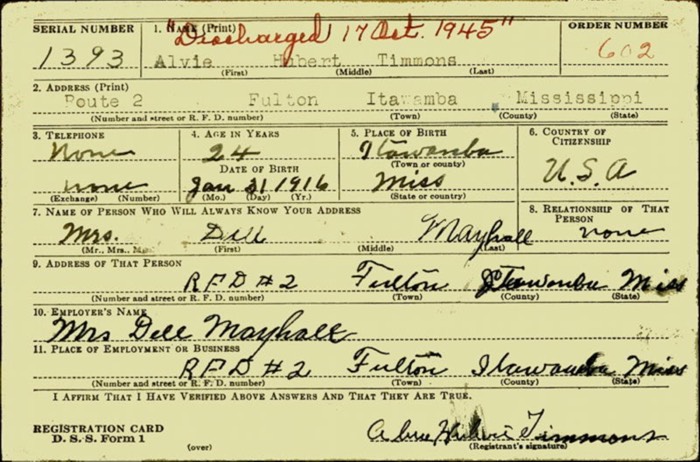 "Discharged 17 Oct. 1945"
SERIAL NUMBER 1. NAME (Print) ORDER NUMBER
1393 Alvie Hubert Timmons 602
(First) (Middle) (Last)
2. ADDRESS (Print)
Route 2 Fulton Itawamba Mississippi
(Number and street or R. F. D. number) (Town) (County) (State)
3. TELEPHONE 4. AGE IN YEARS 5. PLACE OF BIRTH 6. COUNTRY OF CITIZENSHIP
None 24 Itawamba
DATE OF BIRTH (Town or county) U.S.A
none Jan 31 1916 Miss
(Exchange) (Number) (Mo.) (Day) (Yr.) (State or country)
7. NAME OF PERSON WHO WILL ALWAYS KNOW YOUR ADDRESS 8. RELATIONSHIP OF THAT PERSON
Mrs. Dell Mayhall none
(Mr., Mrs., (First) (Middle) (Last)
9. ADDRESS OF THAT PERSON
RFD #2 Fulton Itawamba Miss
(Number and street or R. F. D. number) (Town) (County) (State)
10. EMPLOYER'S NAME
Mrs Dell Mayhall
11. PLACE OF EMPLOYMENT OR BUSINESS
RFD #2 Fulton Itawamba Miss
(Number and street or R. F. D. number) (Town) (County) (State)
I AFFIRM THAT I HAVE VERIFIED ABOVE ANSWERS AND THAT THEY ARE TRUE.
REGISTRATION CARD
D. S. S. Form 1 (over)
Timmons
(Registrant's signature)